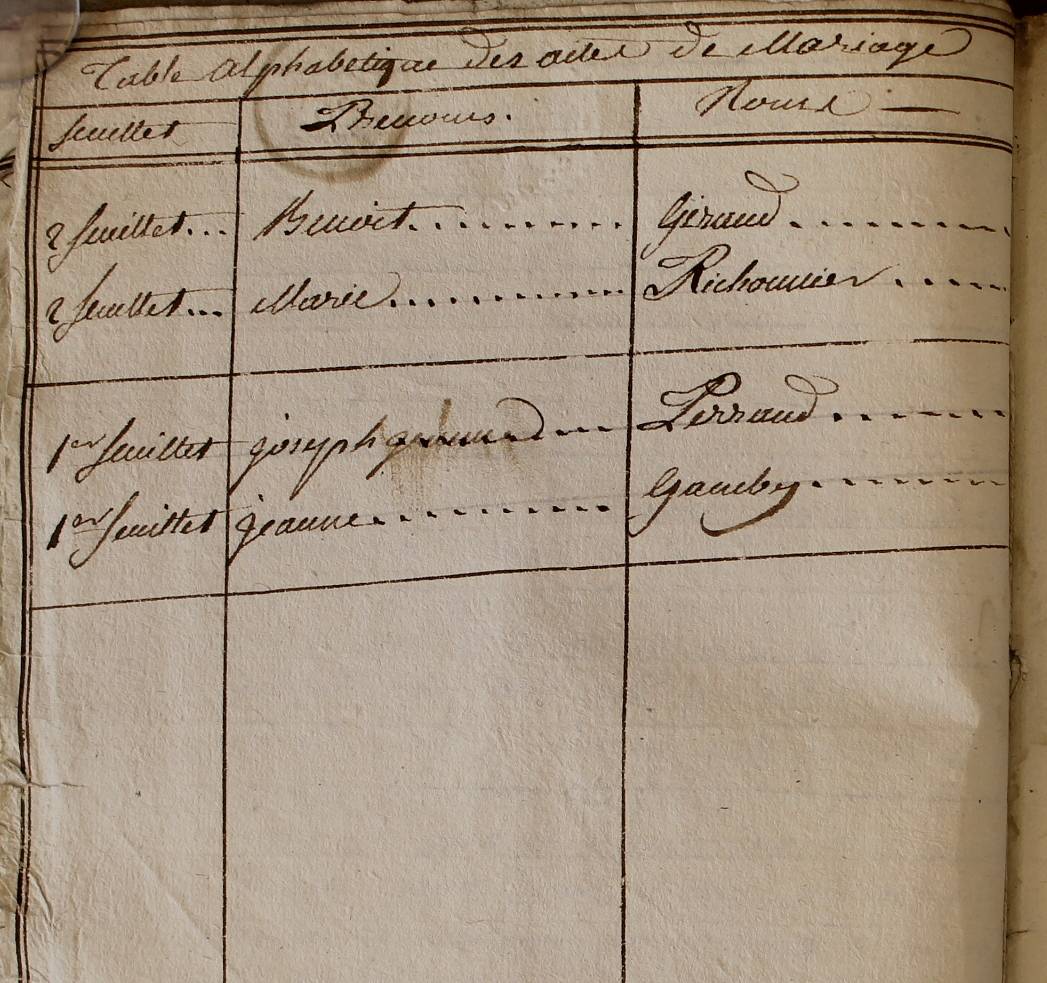 Table alphabetique des actes de Mariage
feuillet Prenoms. Noms
2 feuillet... Benoit Giraud
2 feuillet... Marie Richoumier
1er feuillet joseph Perraud
1er feuillet jeanne Gamby